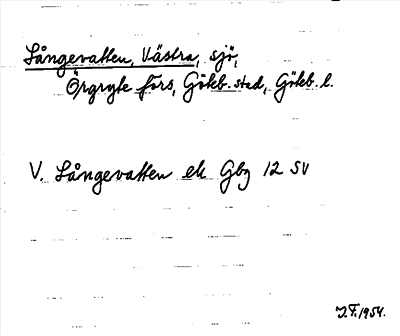 Långevatten, Västra, sjö,
Örgryte förs, Göteb. stad, Göteb. l.
V. Långevatten ek Gbg 12 SV
J.F. 1954.